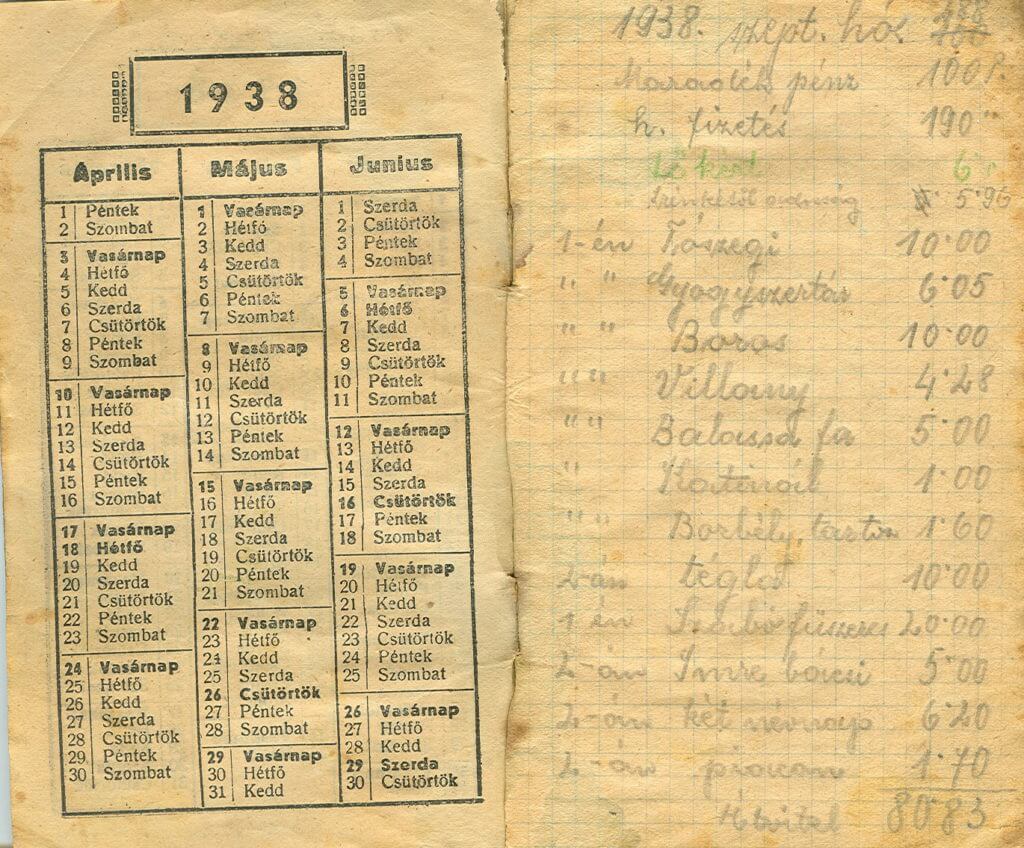 1938
Április
1 Péntek
2 Szombat
3 Vasárnap
4 Hétfő
5 Kedd
6 Szerda
7 Csütörtök
8 Péntek
9 Szombat
10 Vasárnap
11 Hétfő
12 Kedd
13 Szerda
14 Csütörtök
15 Péntek
16 Szombat
17 Vasárnap
18 Hétfő
19 Kedd
20 Szerda
21 Csütörtök
22 Péntek
23 Szombat
24 Vasárnap
25 Hétfő
26 Kedd
27 Szerda
28 Csütörtök
29 Péntek
30 Szombat
Május
1 Vasárnap
2 Hétfő
3 Kedd
4 Szerda
5 Csütörtök
6 Péntek
7 Szombat
8 Vasárnap
9 Hétfő
10 Kedd
11 Szerda
12 Csütörtök
13 Péntek
14 Szombat
15 Vasárnap
16 Hétfő
17 Kedd
18 Szerda
19 Csütörtök
20 Péntek
21 Szombat
22 Vasárnap
23 Hétfő
24 Kedd
25 Szerda
26 Csütörtök
27 Péntek
28 Szombat
29 Vasárnap
30 Hétfő
31 Kedd
Junius
1 Szerda
2 Csütörtök
3 Péntek
4 Szombat
5 Vasárnap
6 Hétfő
7 Kedd
8 Szerda
9 Csütörtök
10 Péntek
11 Szombat
12 Vasárnap
13 Hétfő
14 Kedd
15 Szerda
16 Csütörtök
17 Péntek
18 Szombat
19 Vasárnap
20 Hétfő
21 Kedd
22 Szerda
23 Csütörtök
24 Péntek
25 Szombat
26 Vasárnap
27 Hétfő
28 Kedd
29 Szerda
30 Csütörtök
1938. szept. hó.
Maradék pénz 100 P.
h. fizetés 190 "
6
5.96
1-én Fószegi 10.00
" " Gyógyszertár 6.05
" " Boros 10.00
" " Villany 4.28
" " Balassa fa 5.00
" 1.00
" " Borbély 1.60
2-án tégla 10.00
1 én Szabó fűszeres 20.00
2-án Imre bácsi 5.00
2-án két névnap 6.20
2-án piacon 1.70
Átvitel 80.83